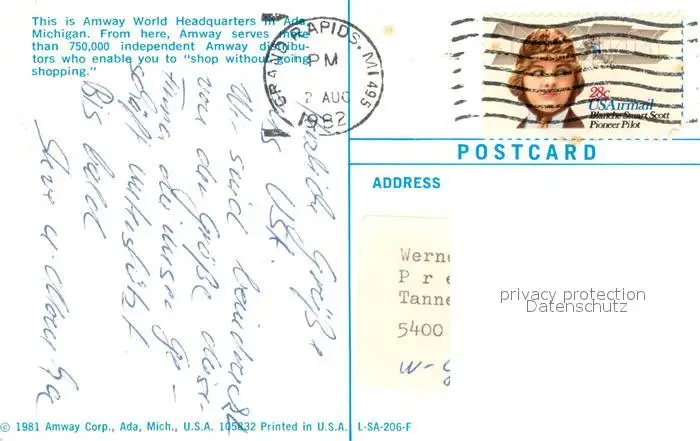 This is Amway World Headquarters in Ada,
Michigan. From here, Amway serves more
than 750,000 independent Amway distribu-
tors who enable you to "shop without going
shopping."
GRAND RAPIDS, MI 495
PM
2 AUG
1982
28c
USAirmail
Blanche Stuart Scott
Pioneer Pilot
POSTCARD
ADDRESS
Werne
Pre
Tanne
5400
W-G
privacy protection
Datenschutz
Herzliche Grüße
aus USA.
Wir sind beeindruckt
von der Größe dieser
Firma, die unser Ge-
schäft unterstützt
Bis bald
© 1981 Amway Corp., Ada, Mich., U.S.A. 105832 Printed in U.S.A. L-SA-206-F